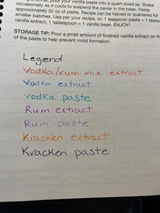 occasionally as it cools to suspend the caviar in the base. Yields
approximately 32 oz of paste. Recipe can be halved or quartered for
smaller batches. Use per your recipe, or: 1 teaspoon paste = 1 teaspoon
extract, 1 tablespoon = 1 vanilla bean. ENJOY!
STORAGE TIP: Pour a small amount of finished vanilla extract on the
of the paste to help prevent mold formation.
Legend
Vodka/rum mix extract
Vodka extract
Vodka paste
Rum extract
Rum paste
Kracken extract
Kracken paste